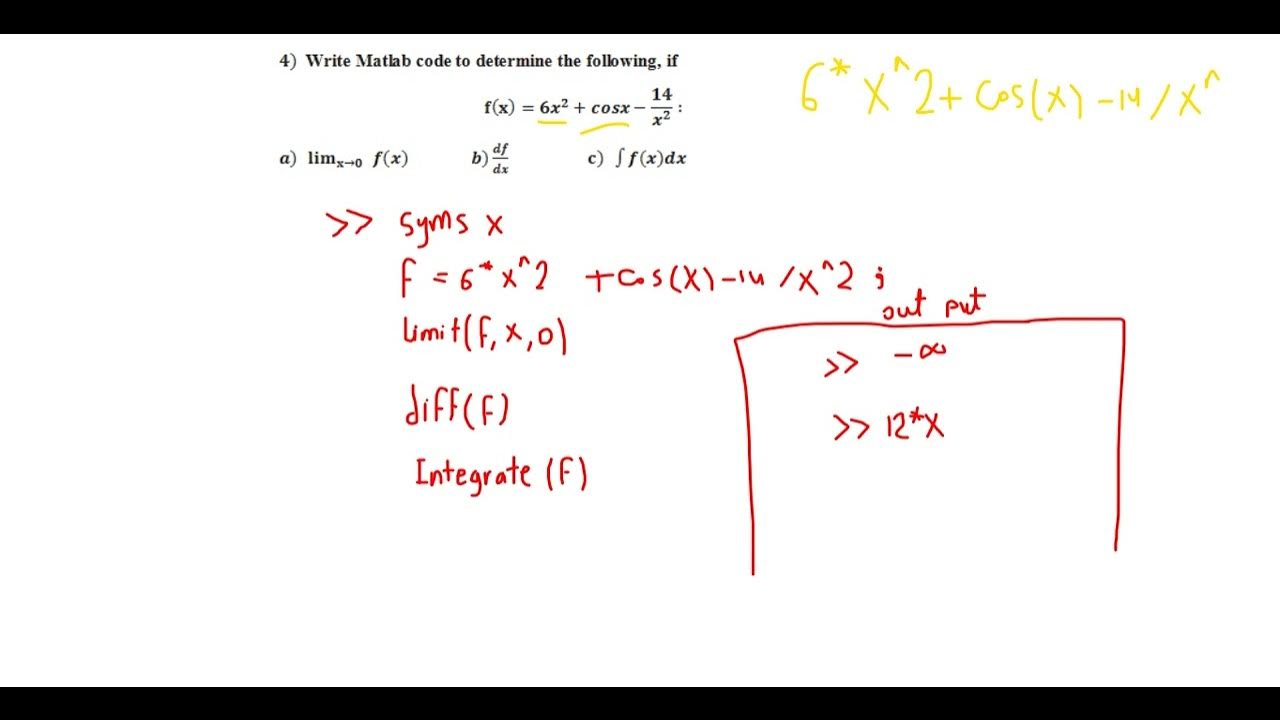 4) Write Matlab code to determine the following, if
f(x) = 6x² + cosx − 14/x² :
a) lim x→0 f(x) b) df/dx c) ∫ f(x)dx
6*x^2+cos(x)-14/x^
>> syms x
f = 6*x^2 +cos(x)-14/x^2;
limit(f,x,0)
diff(f)
Integrate (f)
out put
>> -∞
>> 12*x